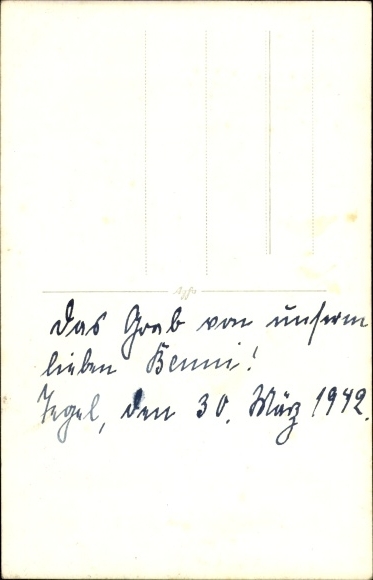 Agfa
Das Grab von unserm
lieben Benni!
Tegel, den 30. März 1942.